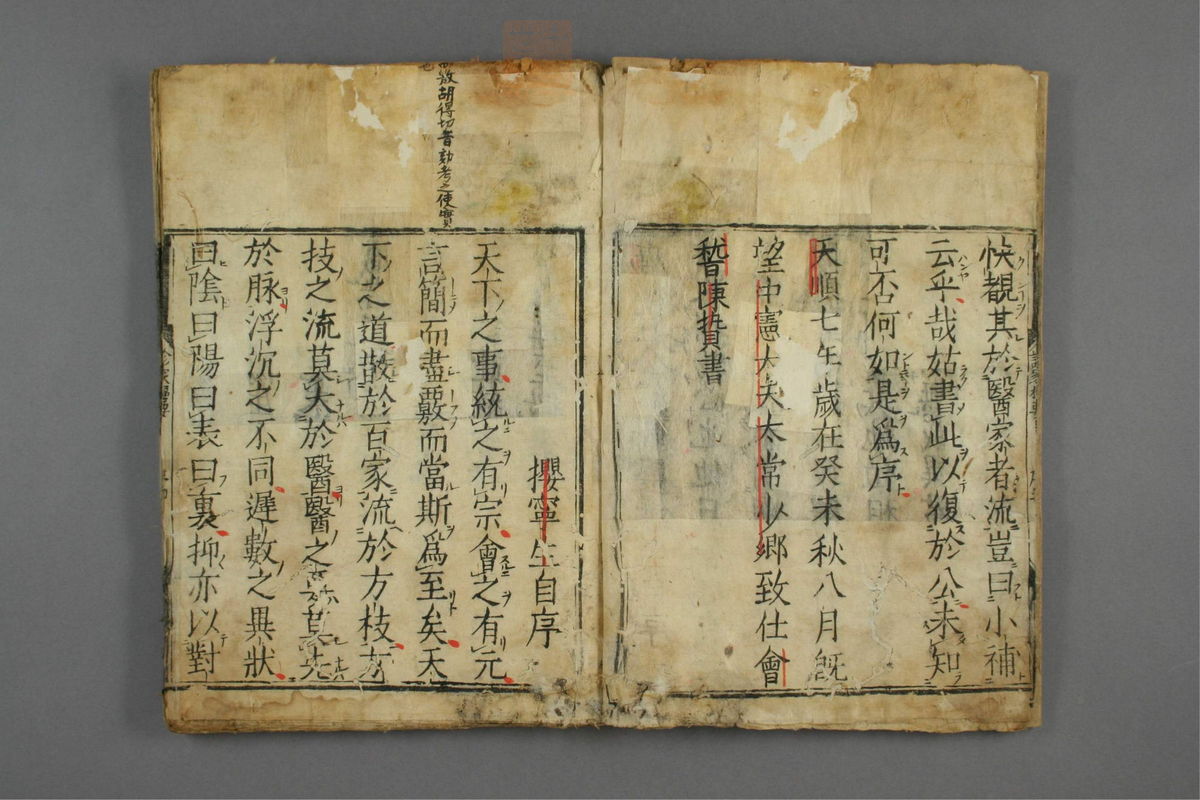 快覩其於醫家者流豈曰小補
云乎哉姑書此以復於公未知
可否何如是爲序
天順七年歲在癸未秋八月旣
望中憲大夫太常少卿致仕會
稽陳贄書
敫胡得切音劾考之使實
攖寧生自序
天下之事統之有宗會之有元
言簡而盡覈而當斯爲至矣天
下之道散於百家流於方枝方
技之流莫大於醫醫之
於脉浮沉之不同遲數之異狀
曰陰曰陽曰表曰裏抑亦以對